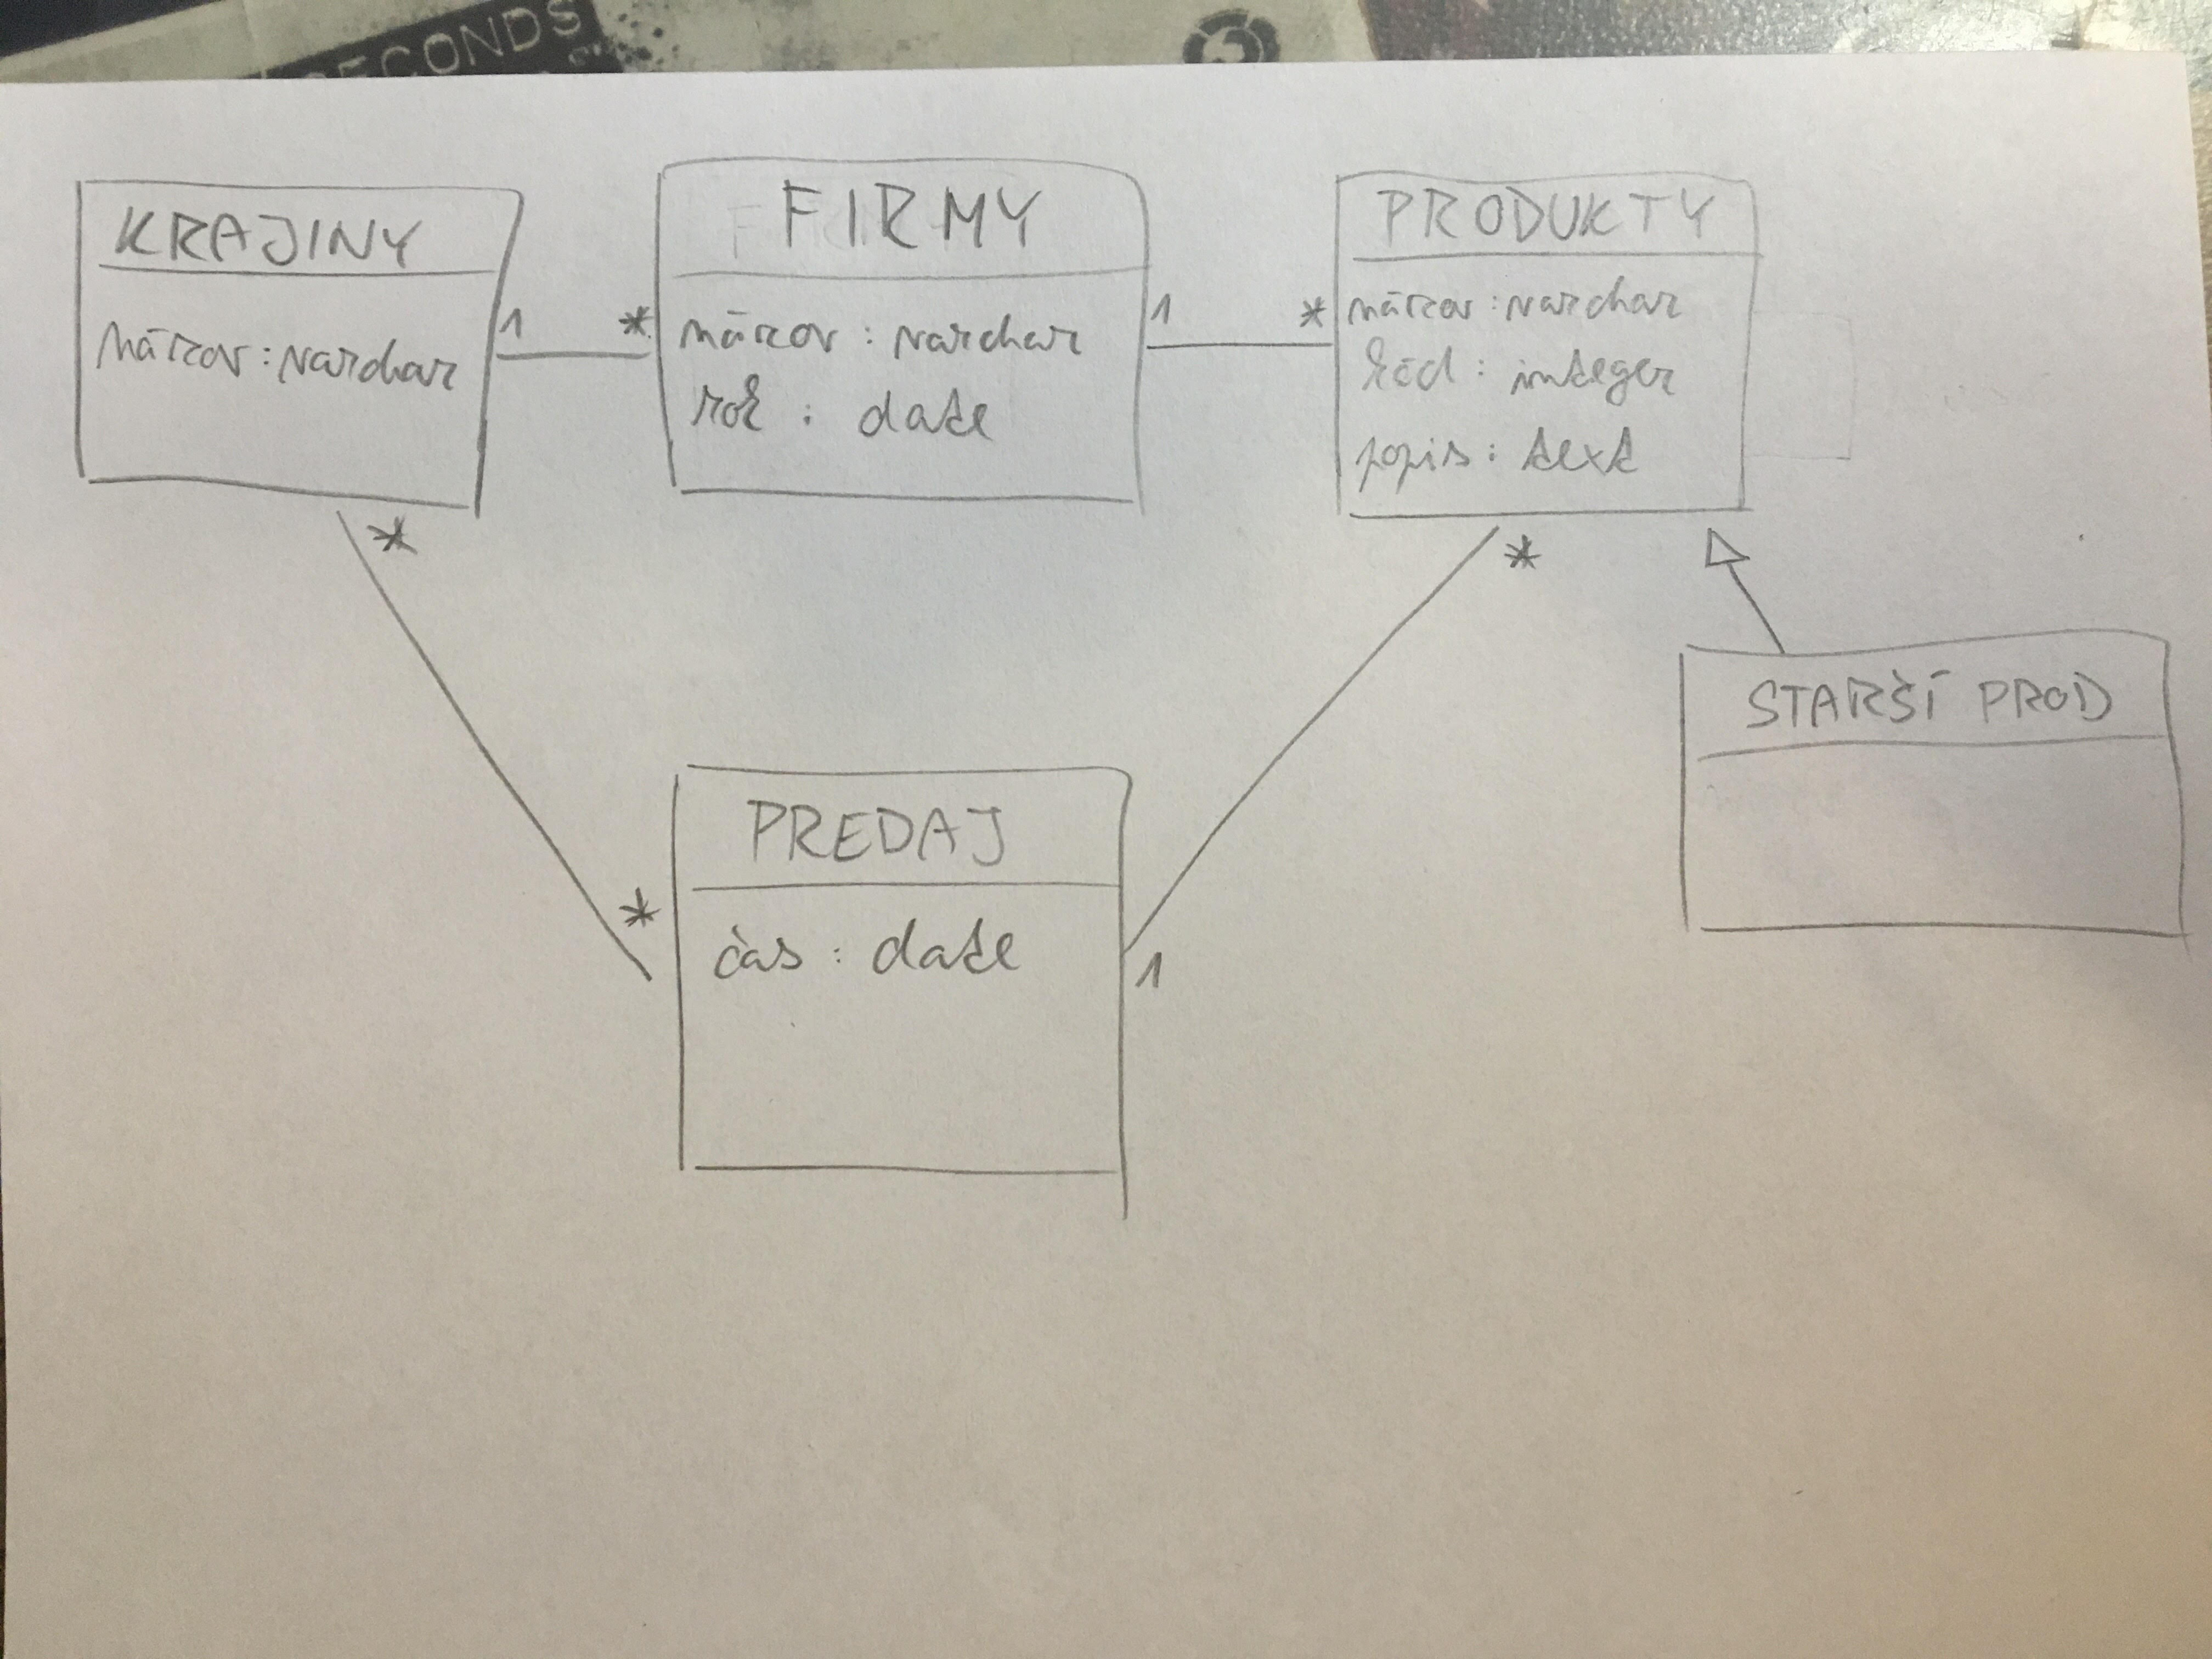 SECONDS
KRAJINY
názov : varchar
1
*
FIRMY
názov : varchar
rok : date
1
*
PRODUKTY
názov : varchar
kód : integer
popis : text
*
*
STARŠÍ PROD
*
PREDAJ
čas : date
1